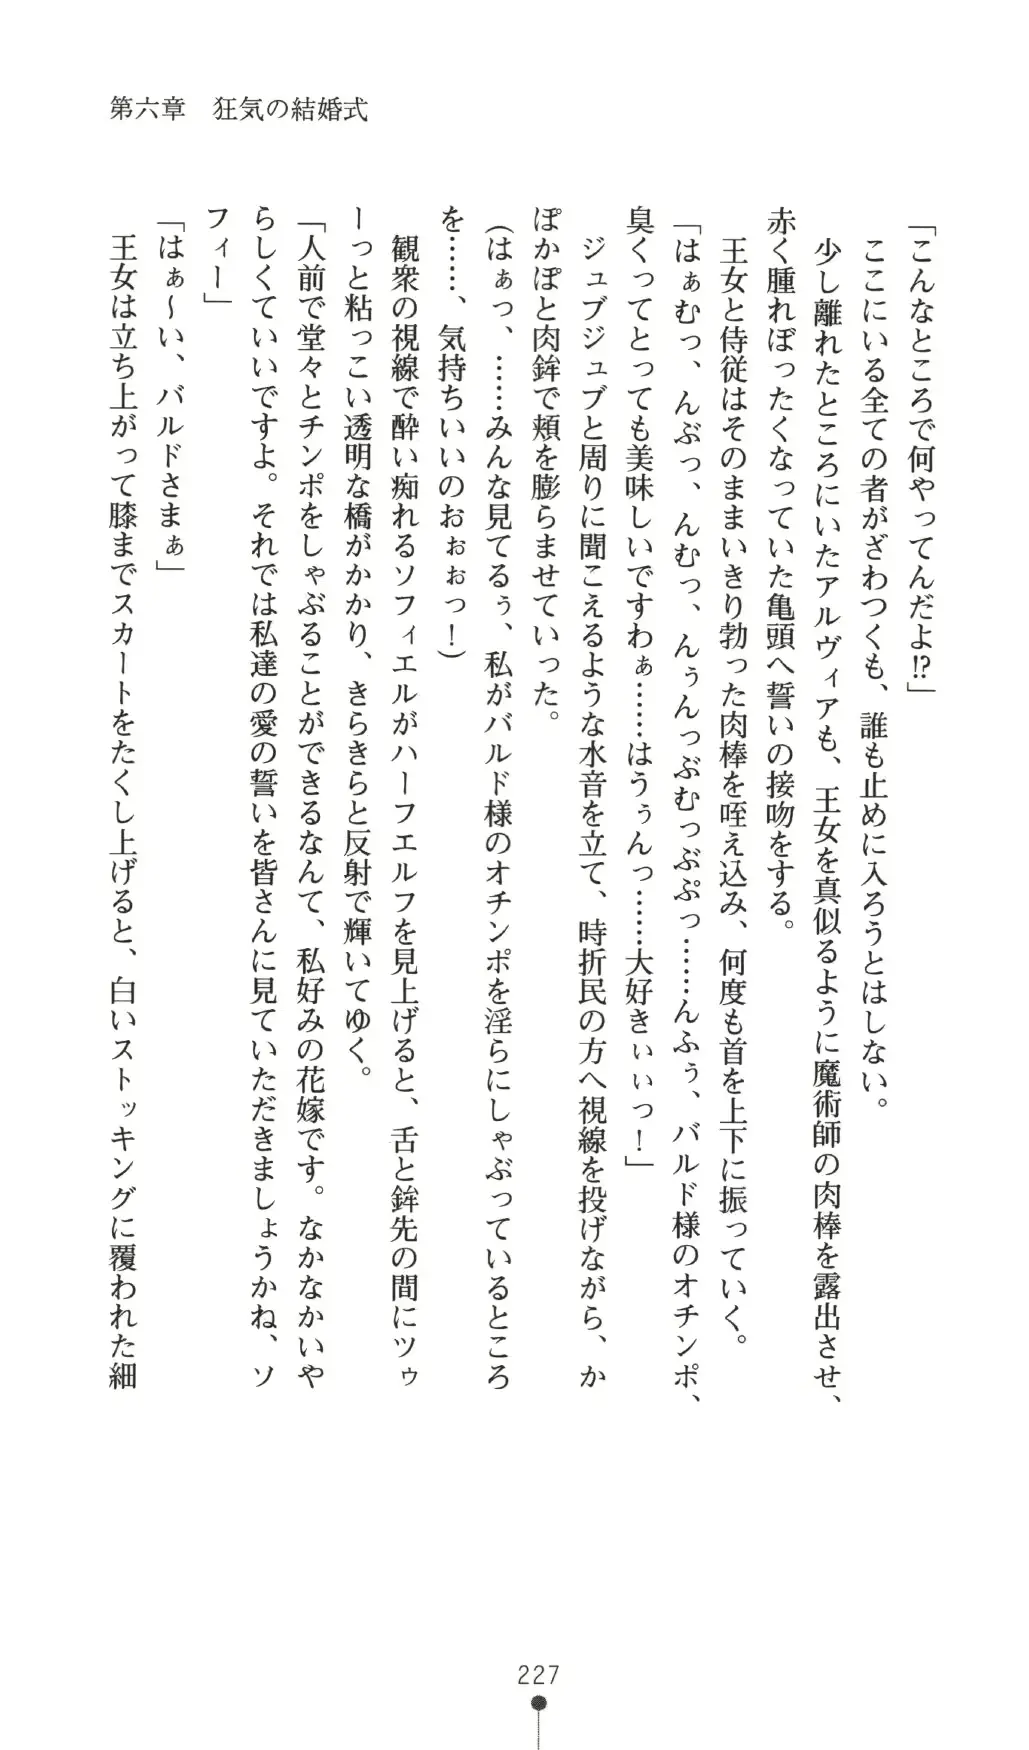 第六章　狂気の結婚式
「こんなところで何やってんだよ!?」
　ここにいる全ての者がざわつくも、誰も止めに入ろうとはしない。
　少し離れたところにいたアルヴィアも、王女を真似るように魔術師の肉棒を露出させ、
赤く腫れぼったくなっていた亀頭へ誓いの接吻をする。
　王女と侍従はそのままいきり勃った肉棒を咥え込み、何度も首を上下に振っていく。
「はぁむっ、んぶっ、んむっ、んぅんっぶむっぶぷっ……んふぅ、バルド様のオチンポ、
臭くってとっても美味しいですわぁ……はうぅんっ……大好きぃぃっ！」
　ジュブジュブと周りに聞こえるような水音を立て、時折民の方へ視線を投げながら、か
ぽかぽと肉鉾で頬を膨らませていった。
(はぁっ、……みんな見てるぅ、私がバルド様のオチンポを淫らにしゃぶっているところ
を……、気持ちいいのおぉぉっ！)
　観衆の視線で酔い痴れるソフィエルがハーフエルフを見上げると、舌と鉾先の間にツゥ
ーっと粘っこい透明な橋がかかり、きらきらと反射で輝いてゆく。
「人前で堂々とチンポをしゃぶることができるなんて、私好みの花嫁です。なかなかいや
らしくていいですよ。それでは私達の愛の誓いを皆さんに見ていただきましょうかね、ソ
フィー」
「はぁ～い、バルドさまぁ」
　王女は立ち上がって膝までスカートをたくし上げると、白いストッキングに覆われた細
227